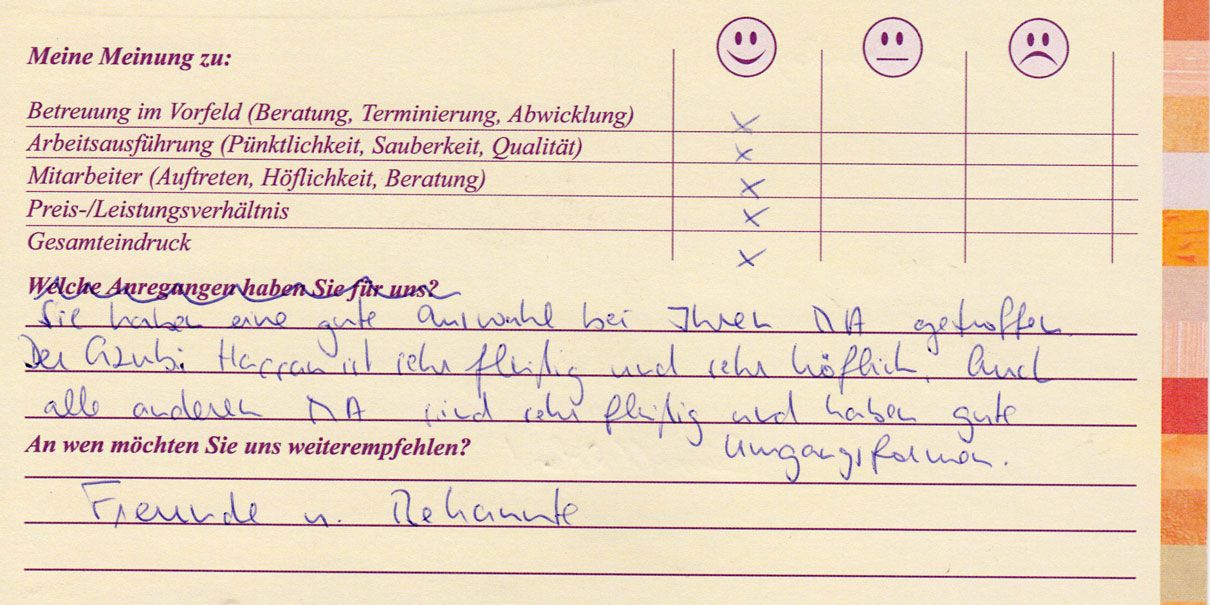 Meine Meinung zu:
Betreuung im Vorfeld (Beratung, Terminierung, Abwicklung)
Arbeitsausführung (Pünktlichkeit, Sauberkeit, Qualität)
Mitarbeiter (Auftreten, Höflichkeit, Beratung)
Preis-/Leistungsverhältnis
Gesamteindruck
Welche Anregungen haben Sie für uns?
Sie haben eine gute Auswahl bei Ihren MA getroffen.
Der Azubi Hassan ist sehr fleißig und sehr höflich. Auch
alle anderen MA sind sehr fleißig und haben gute
Umgangsformen.
An wen möchten Sie uns weiterempfehlen?
Freunde u. Bekannte